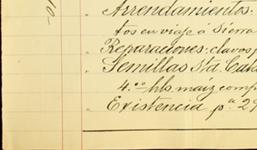 Arrendamientos.
tos en viaje á Sierra
Reparaciones: clavos p
Semillas Sta. Cata
4.00 hls. maiz comp
Existencia pa 29